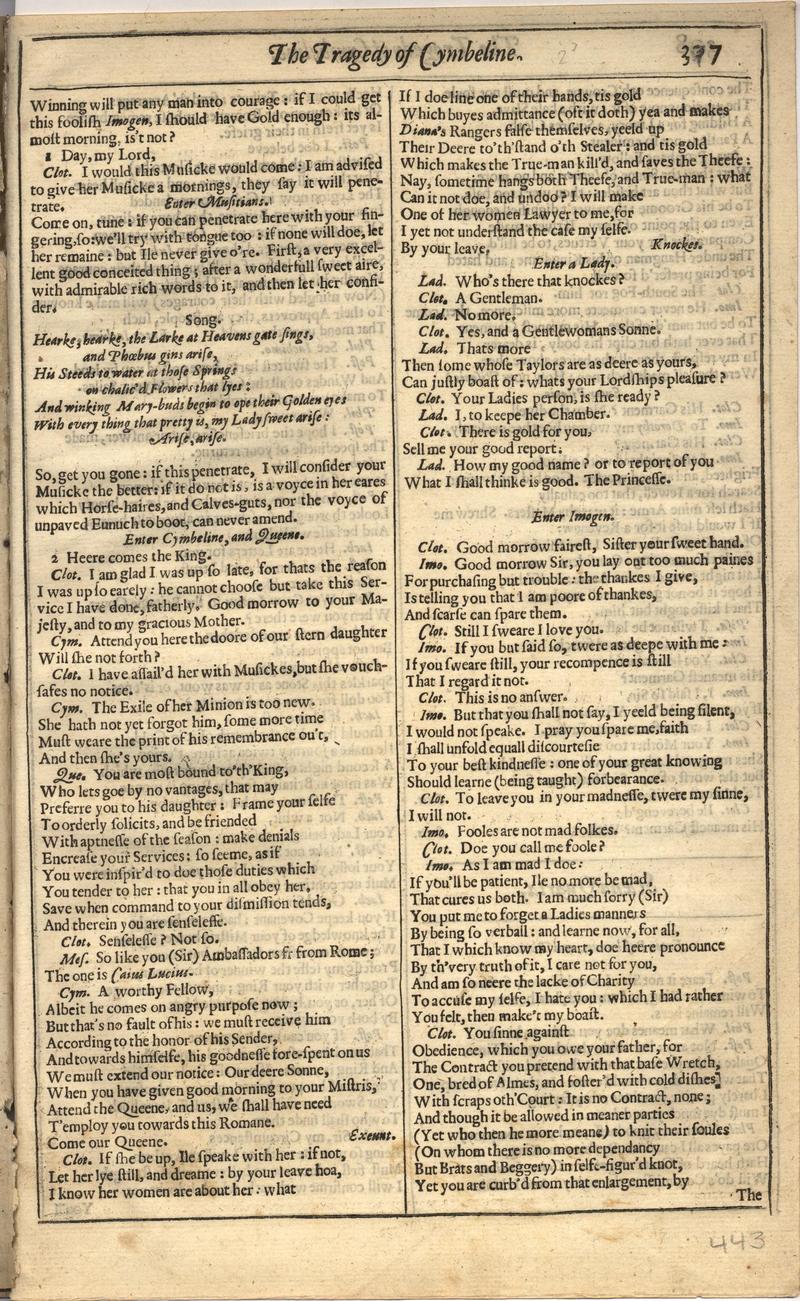 The Tragedy of Cymbeline.
377
Winning will put any man into courage: if I could get
this fooliſh Imogen, I ſhould have Gold enough: its al-
moſt morning, is't not?
1 Day, my Lord,
Clot. I would this Muſicke would come: I am adviſed
to give her Muſicke a mornings, they ſay it will pene-
trate. Enter Muſitians.
Come on, tune: if you can penetrate here with your fin-
gering, ſo: we'll try with tongue too: if none will doe, let
her remaine: but Ile never give o're. Firſt, a very excel-
lent good conceited thing; after a wonderfull ſweet aire,
with admirable rich words to it, and then let her conſi-
der.
Song.
Hearke, hearke, the Larke at Heavens gate ſings,
and Phœbus gins ariſe,
His Steeds to water at thoſe Springs
on chalic'd Flowers that lyes:
And winking Mary-buds begin to ope their Golden eyes
With every thing that pretty is, my Lady ſweet ariſe:
Ariſe, ariſe.
So, get you gone: if this penetrate, I will conſider your
Muſicke the better: if it do not is, is a voyce in her eares
which Horſe-haires, and Calves-guts, nor the voyce of
unpaved Eunuch to boot, can never amend.
Enter Cymbeline, and Queene.
2 Heere comes the King.
Clot. I am glad I was up ſo late, for thats the reaſon
I was up ſo earely: he cannot chooſe but take this Ser-
vice I have done, fatherly. Good morrow to your Ma-
jeſty, and to my gracious Mother.
Cym. Attend you here the doore of our ſtern daughter
Will ſhe not forth?
Clot. I have aſſail'd her with Muſickes, but ſhe vouch-
ſafes no notice.
Cym. The Exile of her Minion is too new.
She hath not yet forgot him, ſome more time
Muſt weare the print of his remembrance ou't,
And then ſhe's yours.
Que. You are moſt bound to'th'King,
Who lets goe by no vantages, that may
Preferre you to his daughter: Frame your ſelfe
To orderly ſolicits, and be friended
With aptneſſe of the ſeaſon: make denials
Encreaſe your Services: ſo ſeeme, as if
You were inſpir'd to doe thoſe duties which
You tender to her: that you in all obey her,
Save when command to your diſmiſſion tends,
And therein you are ſenſeleſſe.
Clot. Senſeleſſe? Not ſo.
Meſ. So like you (Sir) Ambaſſadors fr from Rome;
The one is Caius Lucius.
Cym. A worthy Fellow,
Albeit he comes on angry purpoſe now;
But that's no fault of his: we muſt receive him
According to the honor of his Sender,
And towards himſelfe, his goodneſſe fore-ſpent on us
We muſt extend our notice: Our deere Sonne,
When you have given good morning to your Miſtris,
Attend the Queene, and us, we ſhall have need
T'employ you towards this Romane.
Come our Queene. Exeunt.
Clot. If ſhe be up, Ile ſpeake with her: if not,
Let her lye ſtill, and dreame: by your leave hoa,
I know her women are about her: what
If I doe line one of their hands, tis gold
Which buyes admittance (oft it doth) yea and makes
Diana's Rangers falſe themſelves, yeeld up
Their Deere to'th'ſtand o'th Stealer: and tis gold
Which makes the True-man kill'd, and ſaves the Theefe:
Nay, ſometime hangs both Theefe, and True-man: what
Can it not doe, and undoo? I will make
One of her women Lawyer to me, for
I yet not underſtand the caſe my ſelfe.
By your leave. Knockes.
Enter a Lady.
Lad. Who's there that knockes?
Clot. A Gentleman.
Lad. No more.
Clot. Yes, and a Gentlewomans Sonne.
Lad. Thats more
Then ſome whoſe Taylors are as deere as yours,
Can juſtly boaſt of: whats your Lordſhips pleaſure?
Clot. Your Ladies perſon, is ſhe ready?
Lad. I, to keepe her Chamber.
Clot. There is gold for you,
Sell me your good report.
Lad. How my good name? or to report of you
What I ſhall thinke is good. The Princeſſe.
Enter Imogen.
Clot. Good morrow faireſt, Siſter your ſweet hand.
Imo. Good morrow Sir, you lay out too much paines
For purchaſing but trouble: the thankes I give,
Is telling you that I am poore of thankes,
And ſcarſe can ſpare them.
Clot. Still I ſweare I love you.
Imo. If you but ſaid ſo, twere as deepe with me:
If you ſweare ſtill, your recompence is ſtill
That I regard it not.
Clot. This is no anſwer.
Imo. But that you ſhall not ſay, I yeeld being ſilent,
I would not ſpeake. I pray you ſpare me, faith
I ſhall unfold equall diſcourteſie
To your beſt kindneſſe: one of your great knowing
Should learne (being taught) forbearance.
Clot. To leave you in your madneſſe, twere my ſinne,
I will not.
Imo. Fooles are not mad folkes.
Clot. Doe you call me foole?
Imo. As I am mad I doe:
If you'll be patient, Ile no more be mad,
That cures us both. I am much ſorry (Sir)
You put me to forget a Ladies manners
By being ſo verball: and learne now, for all,
That I which know my heart, doe heere pronounce
By th'very truth of it, I care not for you,
And am ſo neere the lacke of Charity
To accuſe my ſelfe, I hate you: which I had rather
You felt, then make't my boaſt.
Clot. You ſinne againſt
Obedience, which you owe your father, for
The Contract you pretend with that baſe Wretch,
One, bred of Almes, and foſter'd with cold diſhes,
With ſcraps oth'Court: It is no Contract, none;
And though it be allowed in meaner parties
(Yet who then he more meane) to knit their ſoules
(On whom there is no more dependancy
But Brats and Beggery) in ſelfe-figur'd knot,
Yet you are curb'd from that enlargement, by
The
443